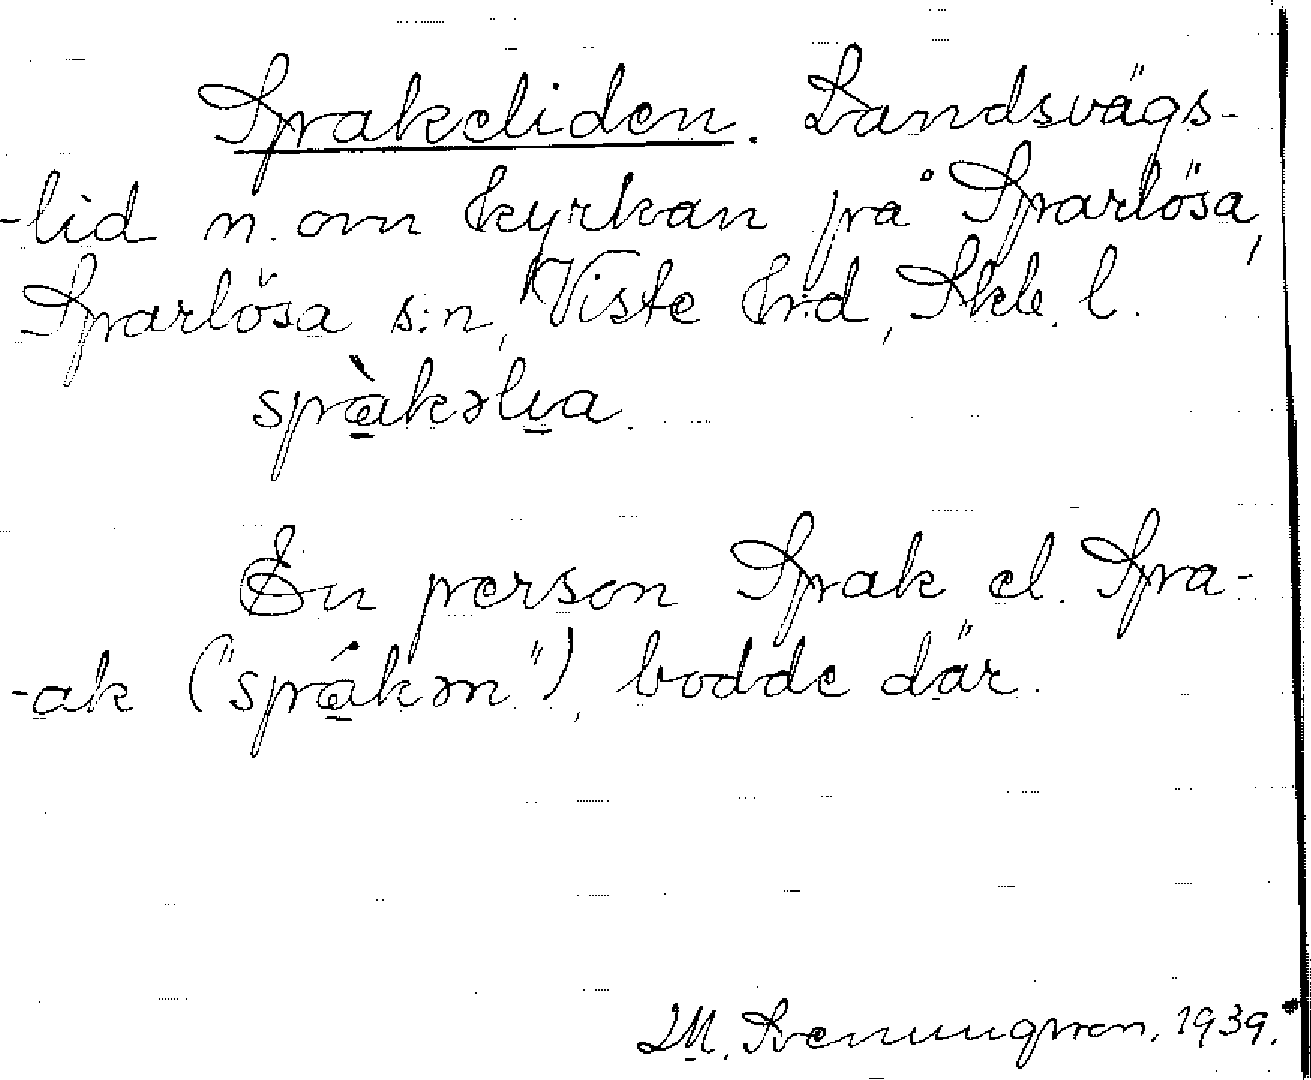 Spakeliden. Landsvägs-
-lid n. om kyrkan på Sparlösa,
Sparlösa s:n, Viste hrd, Skb. l.
spà̱kəli̱a.
En person Spak el. Spa-
-ak ("spá̱kən"), bodde där.
I.M. Svenungsson, 1939.